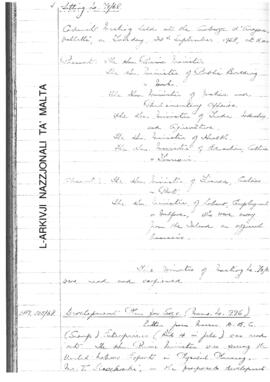 Sitting No. 70/68.
Cabinet Meeting held at the Auberge d'Aragon,
Valletta, on Tuesday, 24th September, 1968, at
Present: The Hon. Prime Minister
The Hon. Minister of Public Building
& Works
The Hon. Minister of Justice and
Parliamentary Affairs
The Hon. Minister of Trade, Industry
and Agriculture
The Hon. Minister of Health
The Hon. Minister of Education, Culture
& Tourism
Absent: The Hon. Minister of Finance, Customs
& Port
The Hon. Minister of Labour, Employment
& Welfare, who were away
from the Island on official
business
The Minutes of Meeting No.
were read and confirmed
Development Plan for Gozo (Memo. No. 796)
Letter from Messrs
Enterprises was read
out. The Hon. Prime Minister was seeing the
United Nations Experts on Physical Planning,
Mr. on the proposed development
L-ARKIVJI NAZZJONALI TA' MALTA